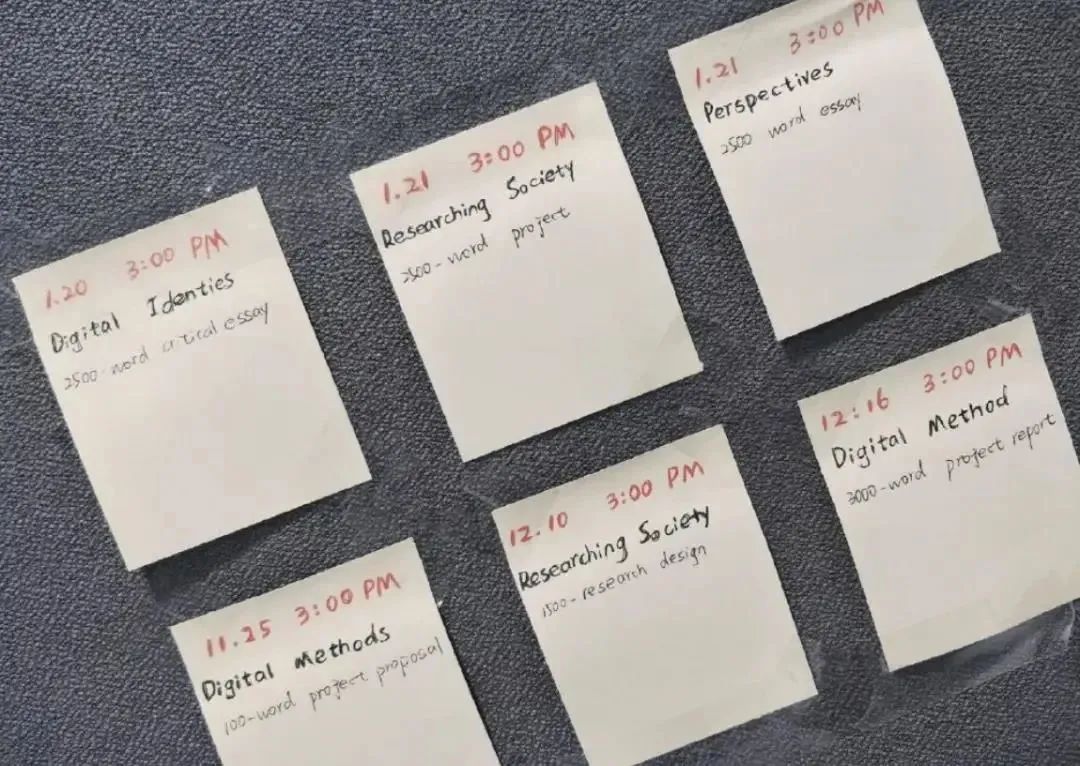 1.20 3:00 PM
Digital Identies
2500-word critical essay
1.21 3:00 PM
Researching Society
2500-word project
1.21 3:00 PM
Perspectives
2500 word essay
11.25 3:00 PM
Digital Methods
100-word project proposal
12.10 3:00 PM
Researching Society
1500-research design
12:16 3:00 PM
Digital Method
3000-word project report